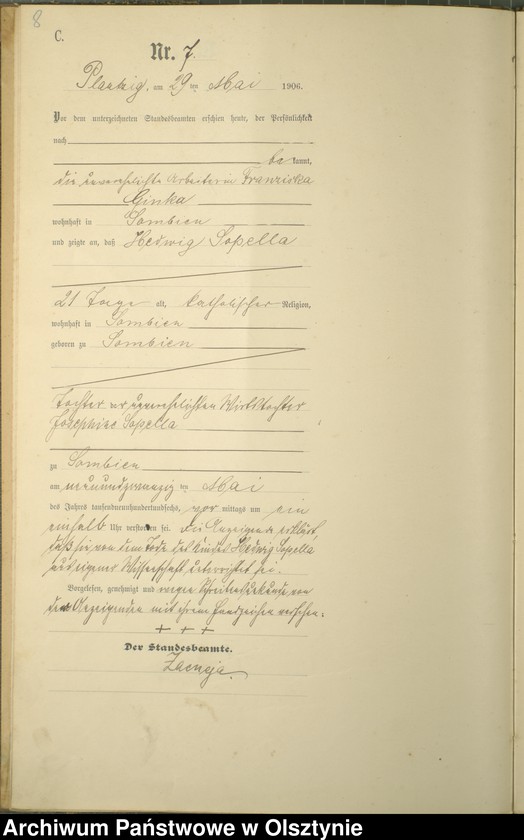 8
C.
Nr. 7.
am 29 ten Mai 1906.
Vor dem unterzeichneten Standesbeamten erschien heute, der Persönlichkeit
nach
be kannt,
die unverehelichte Arbeiterin Franziska
Ginka
wohnhaft in Sombien
und zeigte an, daß Hedwig Sopella
21 Tage alt, katholischer Religion,
wohnhaft in Sombien
geboren zu Sombien
Tochter der unverehelichten Wirtstochter
Josephine Sopella
zu Sombien
am neunundzwanzig ten Mai
des Jahres tausendneunhundertundsechs, vor mittags um ein
einhalb Uhr verstorben sei. Die Anzeigende erklärt,
daß sie von dem Tode des Kindes Hedwig Sopella
aus eigener Wissenschaft unterrichtet sei.
Vorgelesen, genehmigt und wegen Schreibensunkunde von
der Anzeigenden mit ihrem Handzeichen versehen.
+ + +
Der Standesbeamte.
Archiwum Państwowe w Olsztynie